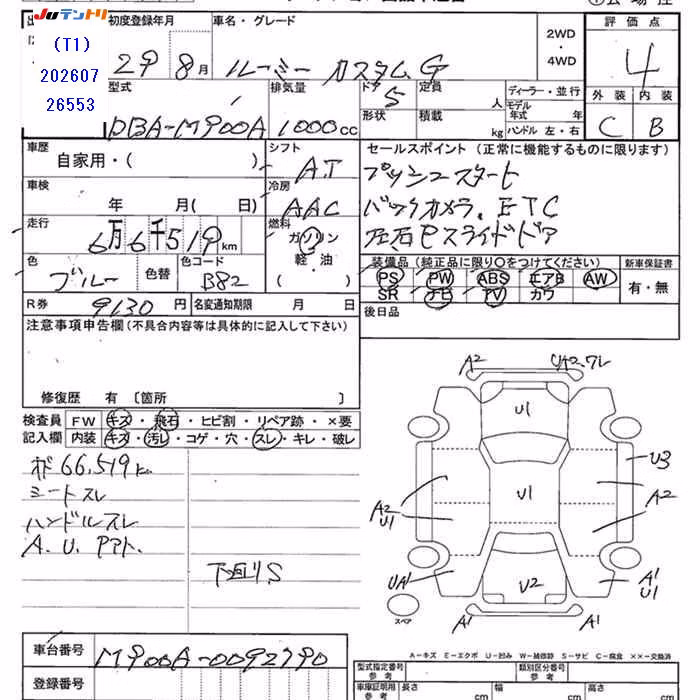 JUテントリ
初度登録年月 車名・グレード 2WD・4WD 評価点
(T1)
202607
26553
29 8月 ルーミー カスタムG 4
型式 排気量 ドア 5 定員 人 ディーラー・並行
形状 積載 kg モデル年式 年 外装 内装
DBA-M900A 1000cc ハンドル 左・右 C B
車歴 自家用・( ) シフト AT
セールスポイント (正常に機能するものに限ります)
プッシュスタート
車検 年 月( 日) 冷房 AAC
バックカメラ、ETC
走行 6万6千519km 燃料 ガソリン 軽・油 ( )
左右Pスライドドア
色 ブルー 色替 色コード B82
装備品 (純正品に限り○をつけてください) 新車保証書
PS PW ABS エアB AW 有・無
SR ナビ TV カワ
R券 9130円 名変通知期限 月 日
後日品
注意事項申告欄 (不具合内容等は具体的に記入して下さい)
修復歴 有 〔箇所 〕
検査員記入欄 FW キズ・飛石・ヒビ割・リペア跡・×要
内装 キズ・汚レ・コゲ・穴・スレ・キレ・破レ
66,519km
シートスレ
ハンドルスレ
A.U.Pアト.
下回りS
A2 UA2,ワレ
U1
U3
U1
A2
A2
U1
UA1
U2
A1
U1
A1 A1
スペア
A-キズ E-エクボ U-凹み W-補修跡 S-サビ C-腐食 ××-交換済
車台番号 M900A-0092790
登録番号
型式指定番号 参考 類別区分番号 参考
車庫証明用 参考 長さ cm 幅 cm 高さ cm